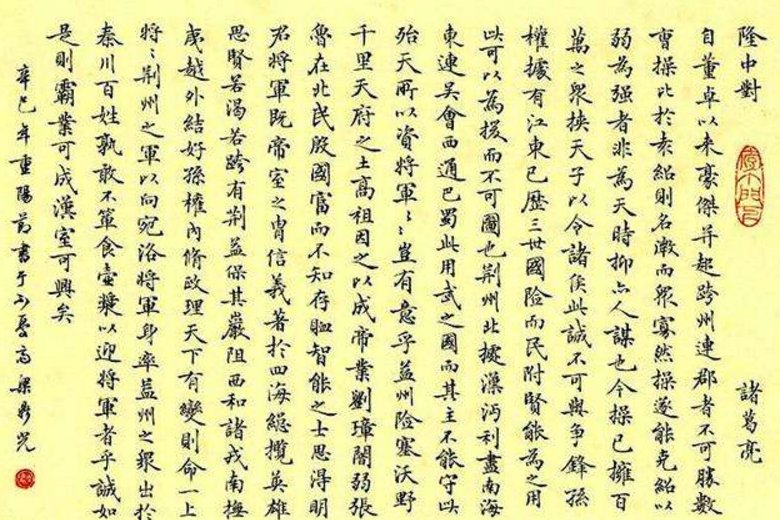 隆中對 諸葛亮
自董卓以来豪傑并起跨州連郡者不可勝數
曹操比於袁紹則名微而眾寡然操遂能克紹以
弱為强者非為天時抑亦人謀也今操已擁百
萬之眾挾天子以令諸侯此誠不可與爭鋒孫
權據有江東已歷三世國險而民附賢能為之用
此可以為援而不可圖也荆州北據漢沔利盡南海
東連吴會西通巴蜀此用武之國而其主不能守此
殆天所以資將軍〻豈有意乎益州險塞沃野
千里天府之土高祖因之以成帝業劉璋闇弱張
魯在北民殷國富而不知存恤智能之士思得明
君將軍既帝室之胄信義著於四海總攬英雄
思賢若渴若跨有荆益保其巖阻西和諸戎南撫
夷越外結好孫權内脩政理天下有變則命一上
將〻荆州之軍以向宛洛將軍身率益州之眾出於
秦川百姓孰敢不簞食壺漿以迎將軍者乎誠如
是則霸業可成漢室可興矣
辛巳年重陽節書于